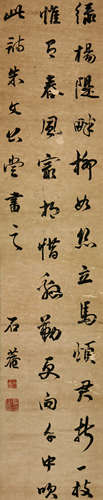 綠楊隄畔柳如絲立馬煩君折一枝
惟有春風最相惜慇勤更向手中吹
此詩朱文公嘗書之
石菴